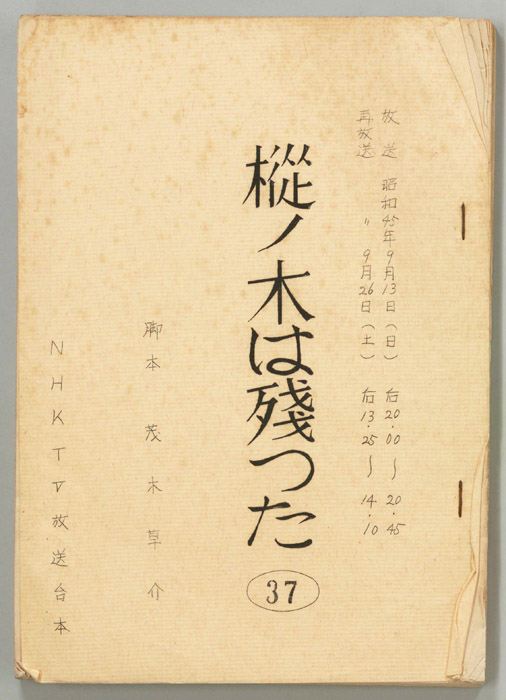 放送 昭和45年9月13日(日) 后20.00〜20.45
再放送 〃 9月26日(土) 后13.25〜14.10
樅ノ木は残つた
37
脚本 茂木草介
NHKTV放送台本